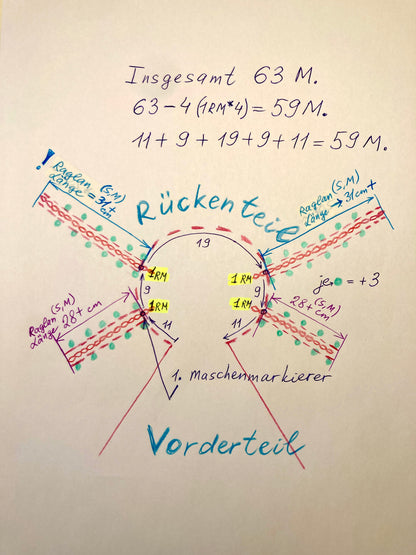 Insgesamt 63 M.
63-4(1RM*4)=59M.
11+9+19+9+11=59M.
!
Raglan (S,M)
Länge = 31+ cm
Raglan (S,M)
Länge → 31cm+
Rückenteil
19
1RM
1RM
je = +3
9
9
1RM
1RM
Raglan (S,M)
Länge 28+cm
(S,M)
28+cm
11
11
1. Maschenmarkierer
Vorderteil